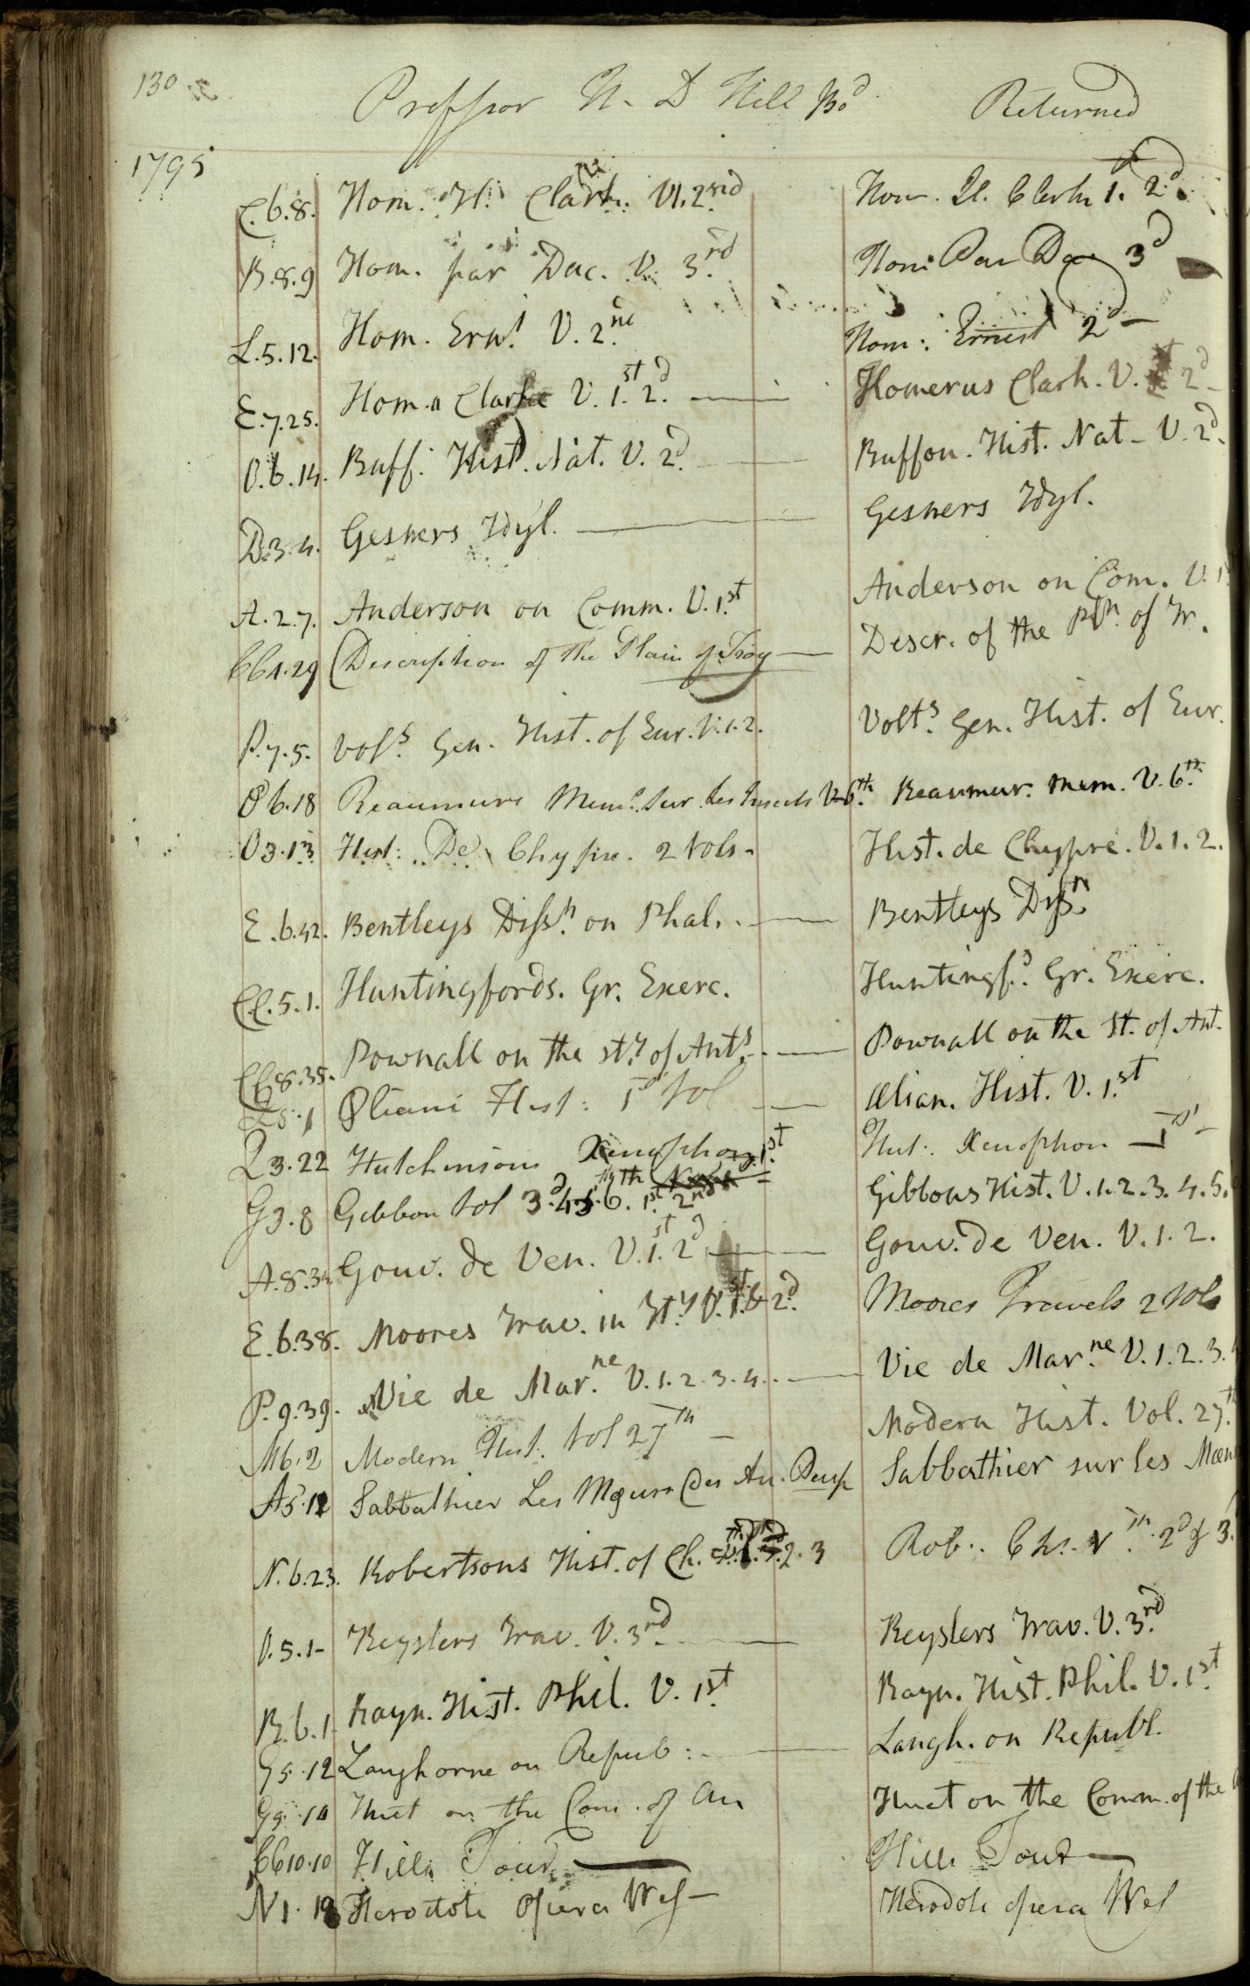 130
Professor N. D Hill Bo.d Returned
1795
C.6.8. Hom. Il. Clark. Vl. 2nd Hom. Il. Clerke 1. 2d.
B.8.9 Hom. par Dac. V. 3.rd Hom: Par Dac 3d
L.5.12. Hom. Ern.t V. 2.nd Hom: Ernest 2d —
E.7.25. Hom.a Clarke V. 1.st 2.d — Homerus Clark. V. 2d —
O.6.14. Buff. Hist. Nat. V. 2d. — Buffon. Hist. Nat – V. 2d.
D.3.4. Gesners Idyl. — Gesners Idyl.
A.2.7. Anderson on Comm. V. 1.st Anderson on Com. V. 1
CC1.29 Description of the Plain of Troy — Descr. of the Pln. of Tr.
P.7.5. Vols Gen. Hist. of Eur. V. 1. 2. Volt.s Gen. Hist. of Eur.
O 6.18 Reaumurs Mems. sur Les Insects V. 6th. Reaumur. Mem. V. 6.th
O3.13 Hist: De Chypre. 2 Vols. Hist. de Chypre. V. 1. 2.
E.6.42. Bentleys Diss.n on Phal. — Bentleys Diss.n
CC.5.1. Huntingfords. Gr. Exerc. Huntingf.d Gr. Exerc.
CC8.35. Pownall on the st.y of Ant.s — Pownall on the St. of Ant.
L5.1 Æliani Hist: 1st Vol — Ælian. Hist. V. 1.st
Q3.22 Hutchinsons Xenophon. 1.st Hut: Xenophon — 1st —
G3.8 Gibbon Vol 3.d 4. 5. 6.th 1.st 2nd Gibbons Hist. V. 1. 2. 3. 4. 5.
A.8.34. Gouv. de Ven. V. 1.st 2d — Gouv. de Ven. V. 1. 2.
E.6.38. Moores Trav. in It.y V. 1.st & 2.d Moores Travels 2 Vols
P.9.39. Vie de Mar.ne V. 1. 2. 3. 4. — Vie de Mar.ne V. 1. 2. 3.
M6.2 Modern Hist. Vol 27th — Modern Hist. Vol. 27.th
A5.12 Sabbathier Les Mœurs Des An. Peup Sabbathier sur les Mœu
N.6.23. Robertsons Hist. of Ch. 2. 3 Rob. Ch. V 2d & 3.
O.5.1– Keyslers Trav. V. 3rd. — Keyslers Trav. V. 3.rd
R.6.1. Rayn. Hist. Phil. V. 1st. Rayn. Hist. Phil. V. 1st.
G5.12 Langhorne on Repub: — Langh. on Republ.
G5.10 Huet on the Com. of An Huet on the Comm. of the
CC10.10 Hills Tour — Hills Tour —
N1.12 Herodoti opera Wes — Herodoti opera Wes